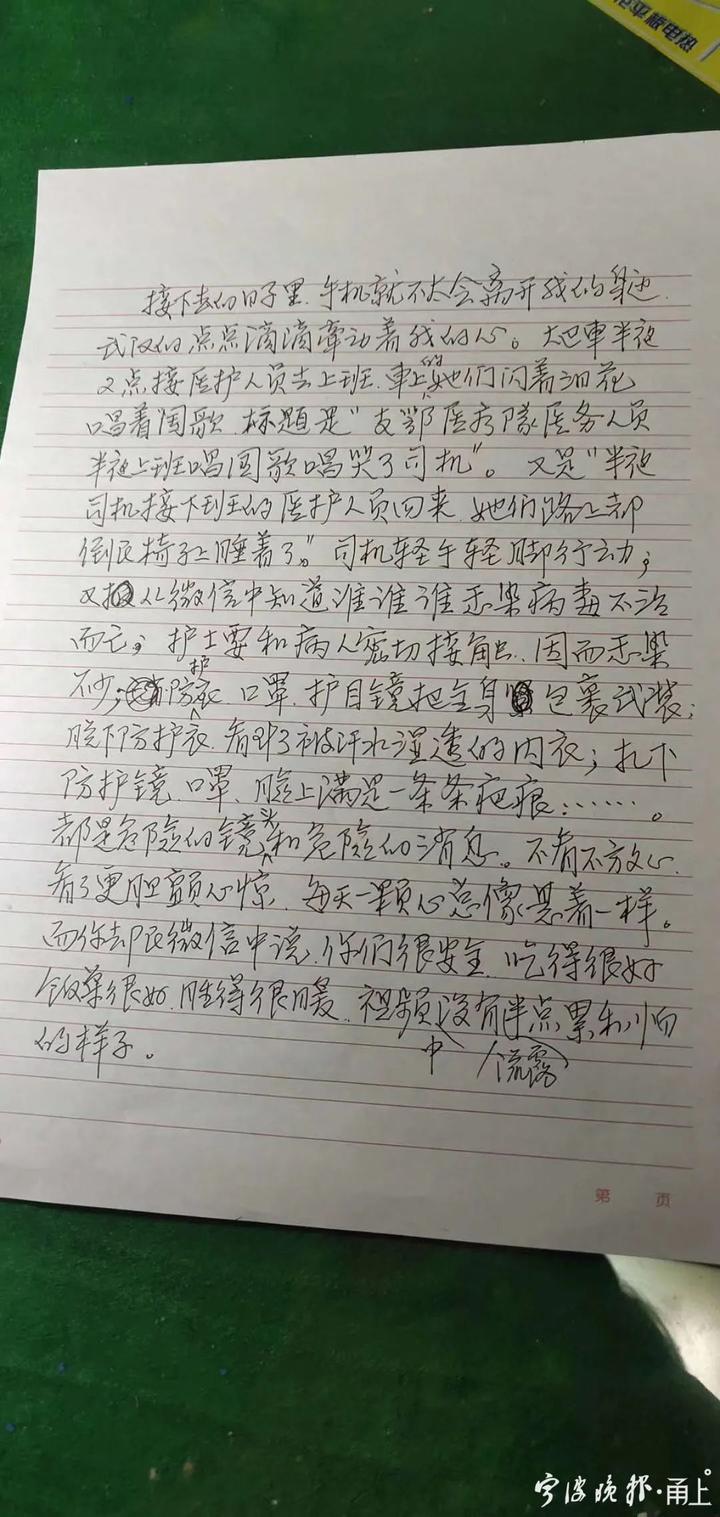 接下去的日子里，手机就不太会离开我的身边，
武汉的点点滴滴牵动着我的心。大巴車半夜
2点接医护人员去上班，車上的她们闪着泪花
唱着国歌，标题是"支鄂医疗隊医务人员
半夜上班唱国歌唱哭了司机"。又是"半夜
司机接下到班的医护人员回来，她们路上都
倒在椅子上睡着了。"司机轻手轻脚行动；
又从微信中知道谁谁谁感染病毒不治
而亡；护士要和病人密切接触，因而感染
不少；防护衣、口罩、护目镜把全身包裹武装；
脱下防护衣，看到了被汗水湿透的内衣；扎下
防护镜、口罩、脸上满是一条条疤痕……。
都是危险的镜头和危险的消息。不看不放心，
看了更胆颤心惊，每天一颗心总像悬着一样。
而你却在微信中说，你们很安全，吃得很好
饭菜很好，睡得很暖，视频中没有半点累和
的样子。
流露
第 页
宁波晚报·甬上